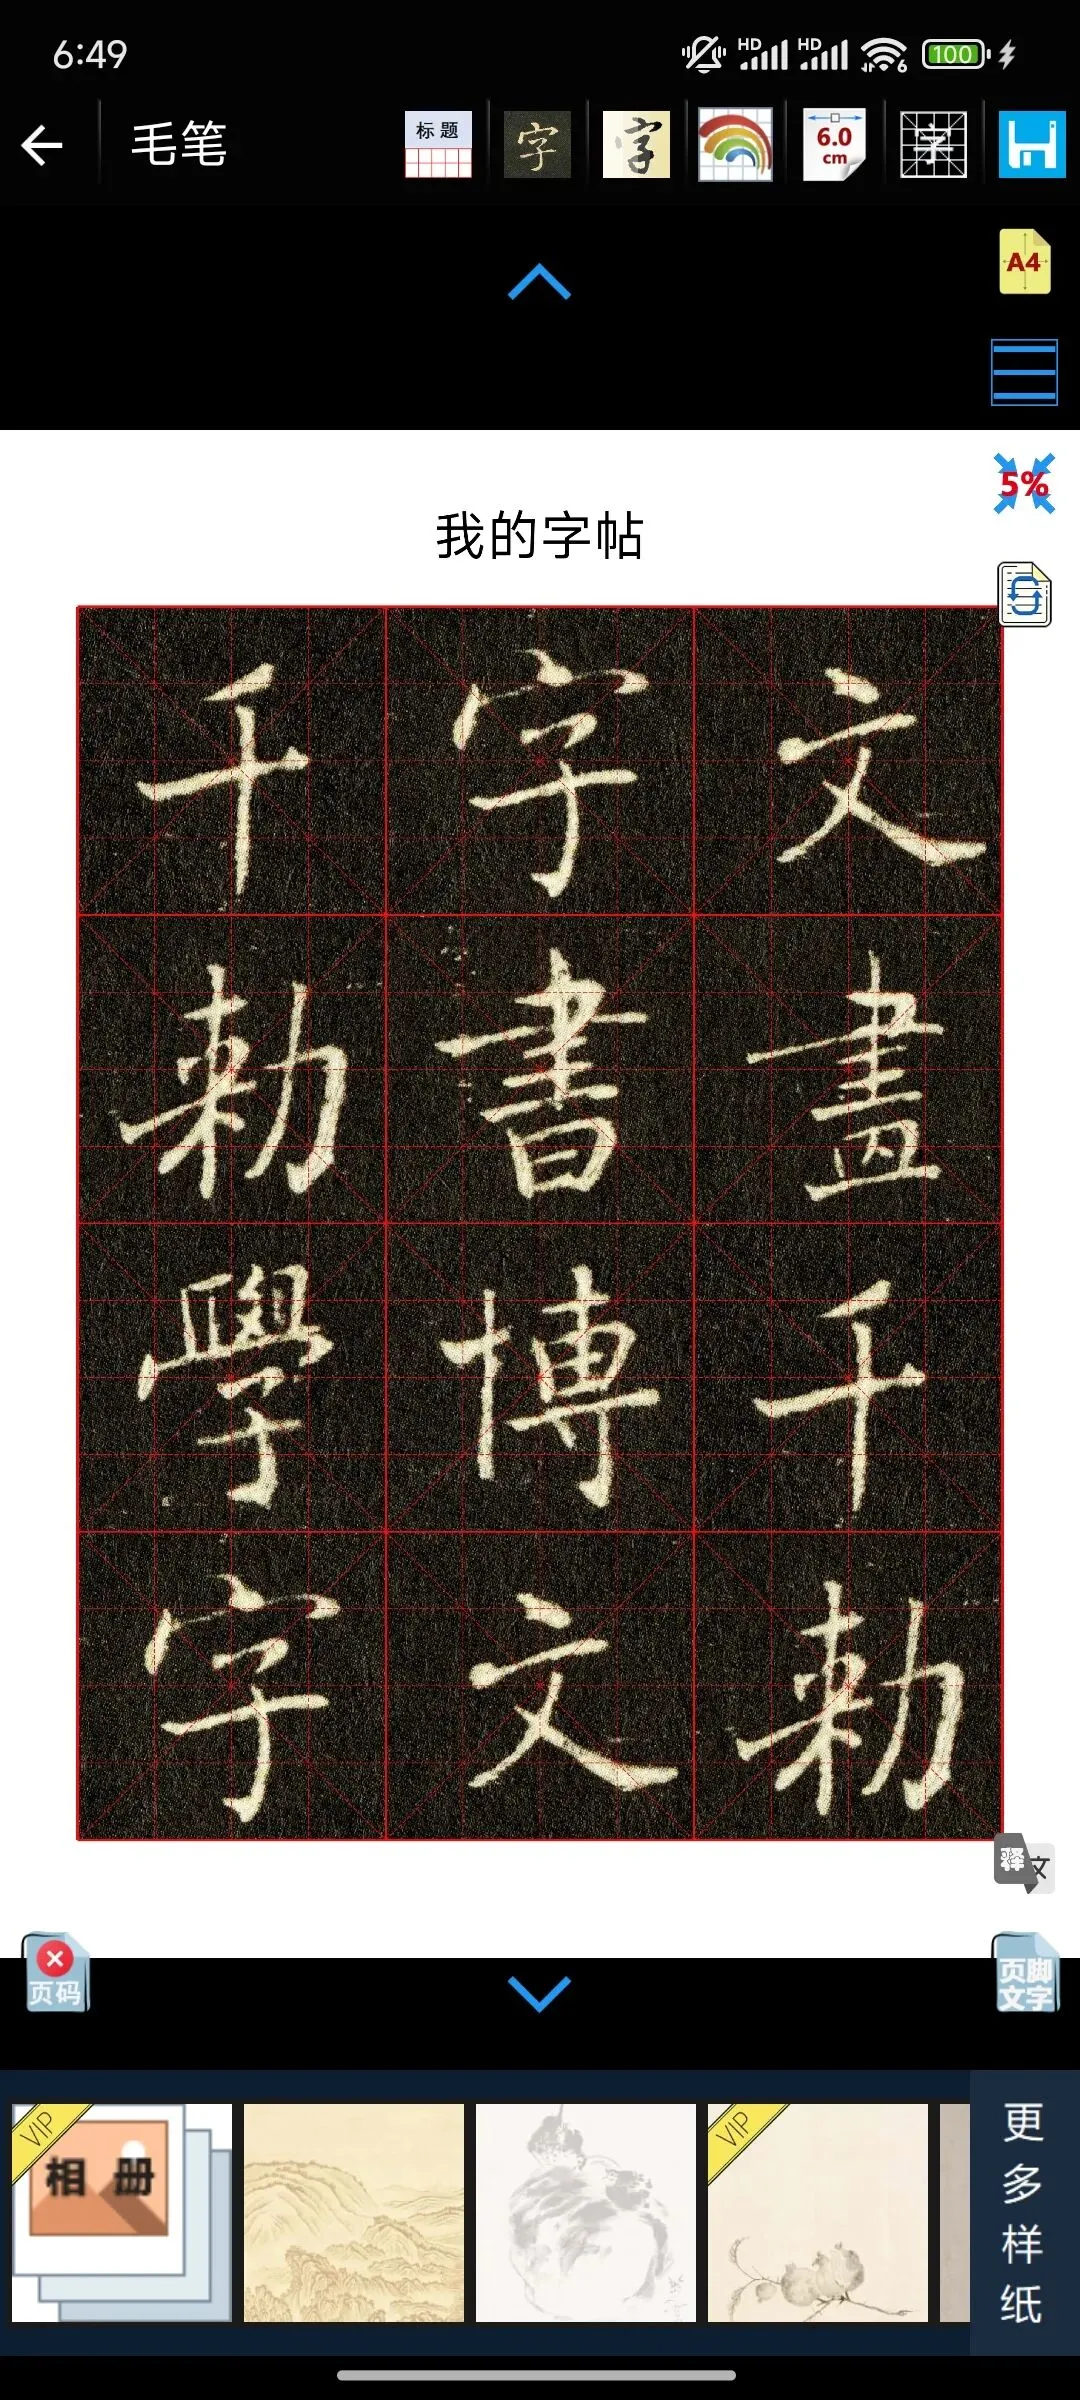 6:49
HD HD 6 100
毛笔
标题 字 字 6.0 cm 字
A4
5%
我的字帖
千字文
勅書畫
學博千
字文勅
释文
页码
页脚文字
VIP 相册
VIP
更多样纸